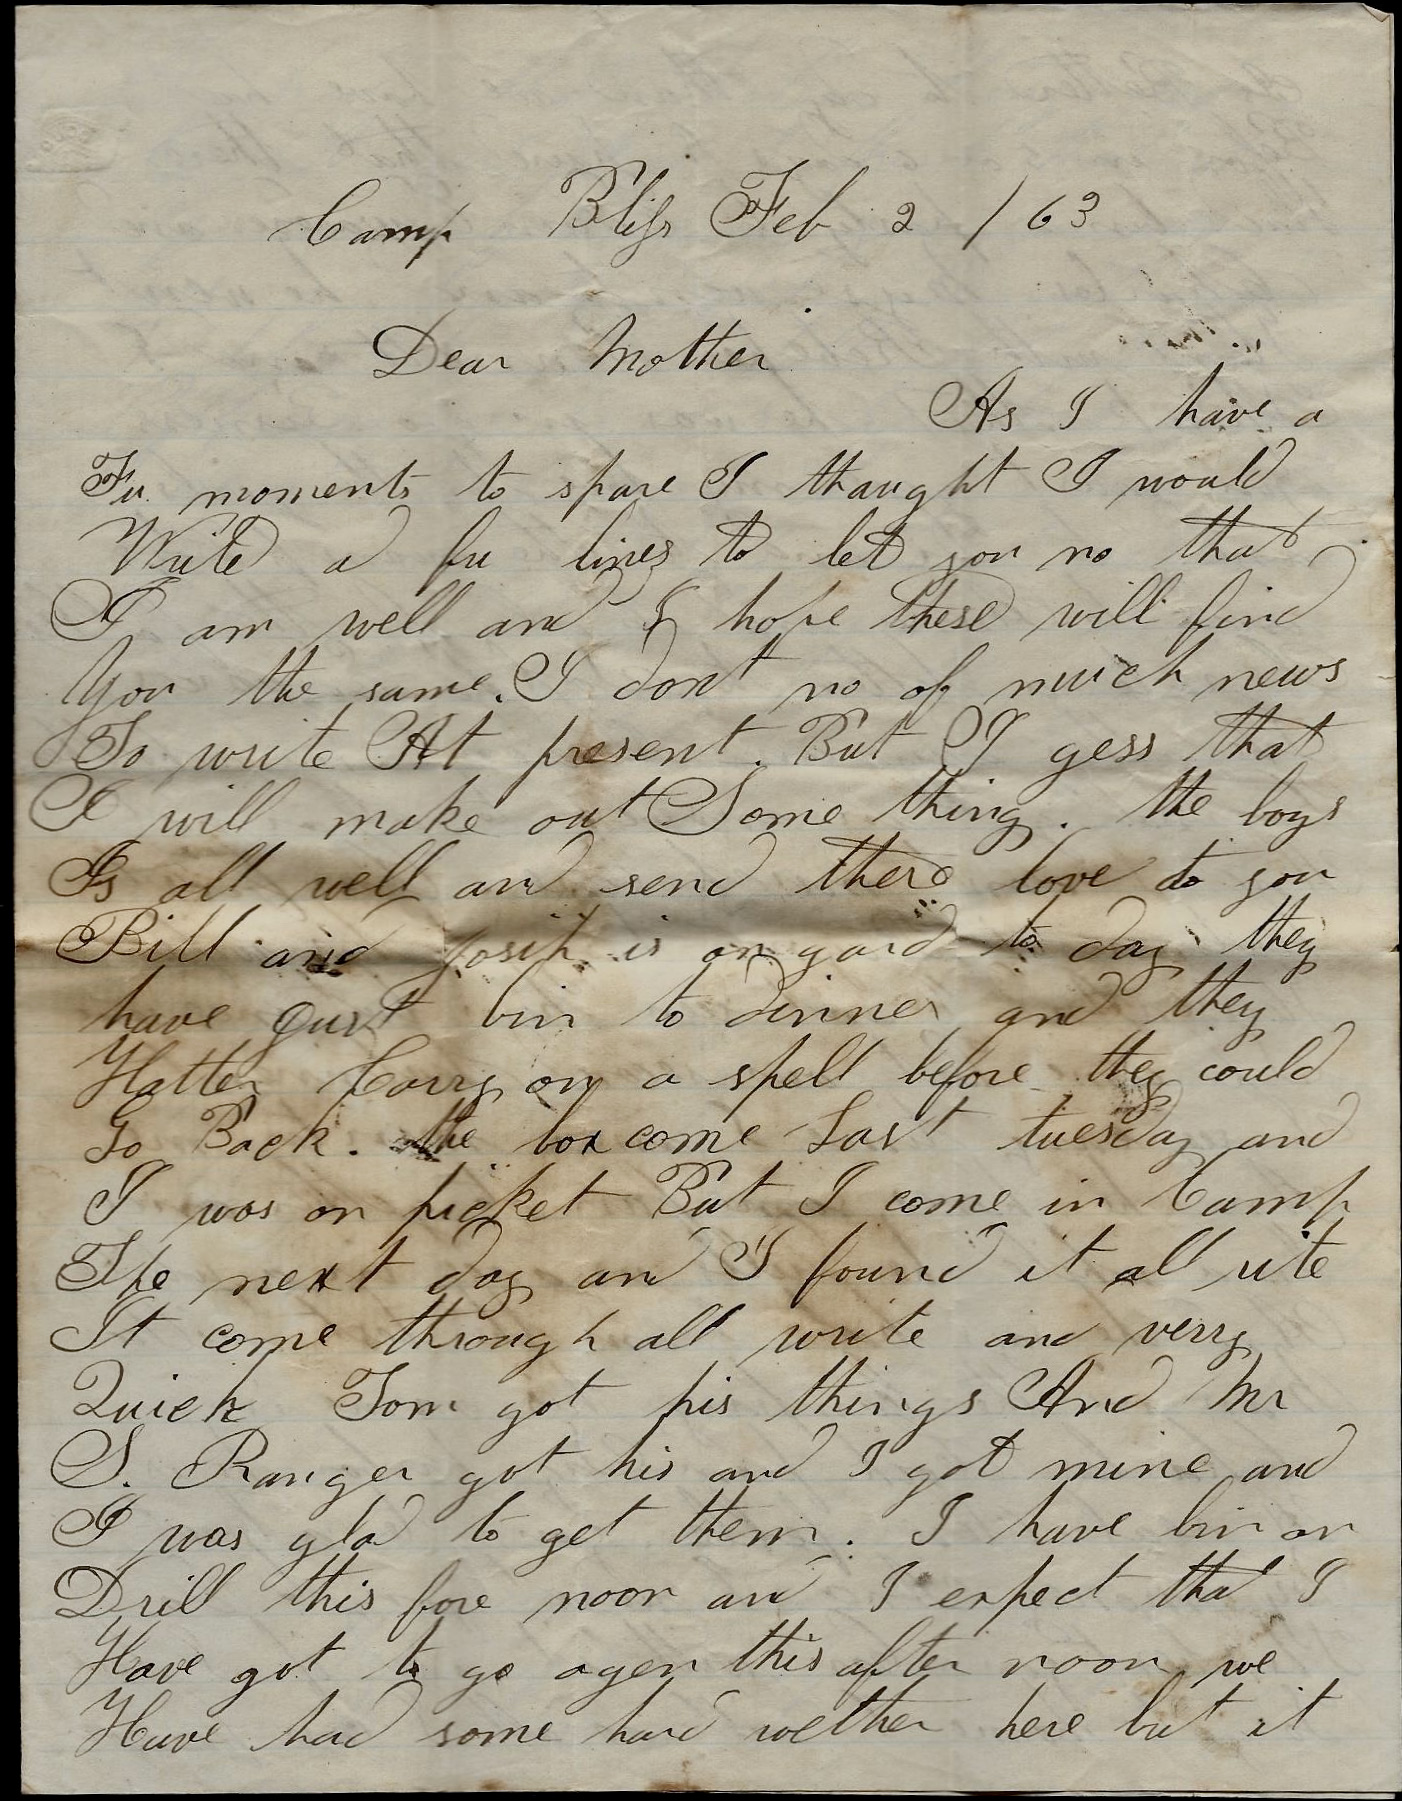 Camp Bliss Feb 2 / 63
Dear Mother
As I have a
Fu moments to spare I thaught I would
Write a fu lines to let you no that
I am well and I hope these will find
You the same. I dont no of much news
To write At present. But I gess that
I will make out Some thing. the boys
Is all well and send there love to you
Bill and Josih is on gard to day they
have Just bin to dinner and they
Hatter Carry on a spell before they could
Go Back. the box come Last tuesday and
I was on picket But I come in Camp
The next day and I found it all rite
It come through all write and verry
Quick Tom got his things And Mr
S. Ranger got his and I got mine and
I was glad to get them. I have bin on
Drill this fore noon and I expect that I
Have got to go agen this after noon we
Have had some hard wether here but it